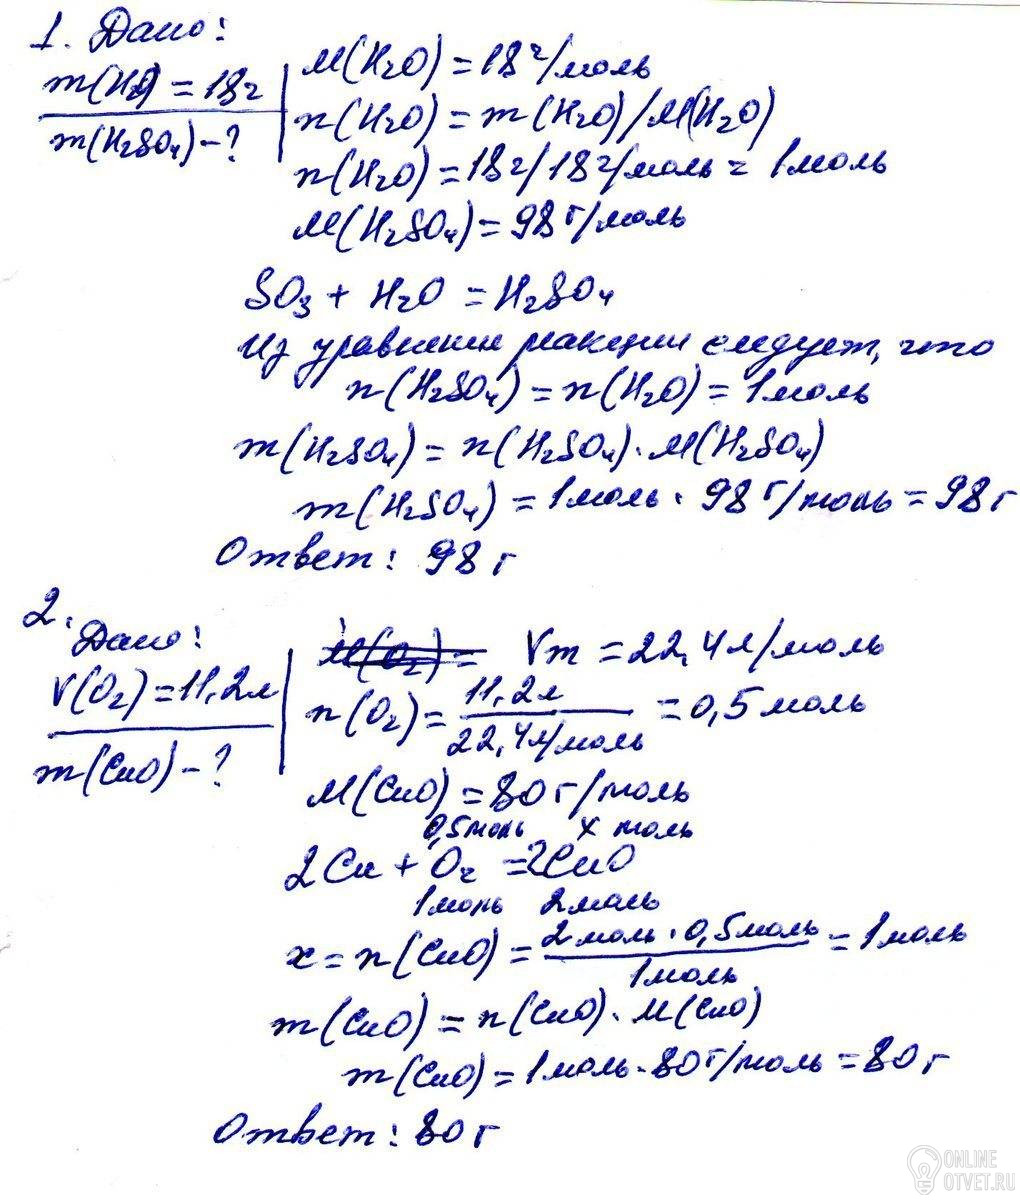 1. Дано:
m(H2O) = 18г
m(H2SO4) - ?
M(H2O) = 18 г/моль
n(H2O) = m(H2O)/M(H2O)
n(H2O) = 18г/18г/моль = 1моль
M(H2SO4) = 98 г/моль
SO3 + H2O = H2SO4
Из уравнения реакции следует, что
n(H2SO4) = n(H2O) = 1моль
m(H2SO4) = n(H2SO4)·M(H2SO4)
m(H2SO4) = 1моль · 98 г/моль = 98 г
Ответ: 98 г
2.
Дано:
V(O2) = 11,2л
m(CuO) - ?
M(O2) = Vm = 22,4л/моль
n(O2) = 11,2л / 22,4л/моль = 0,5 моль
M(CuO) = 80 г/моль
0,5моль x моль
2Cu + O2 = 2CuO
1моль 2моль
x = n(CuO) = 2 моль · 0,5моль / 1моль = 1моль
m(CuO) = n(CuO) · M(CuO)
m(CuO) = 1моль · 80 г/моль = 80 г
Ответ: 80 г
ONLINE
OTVET.RU